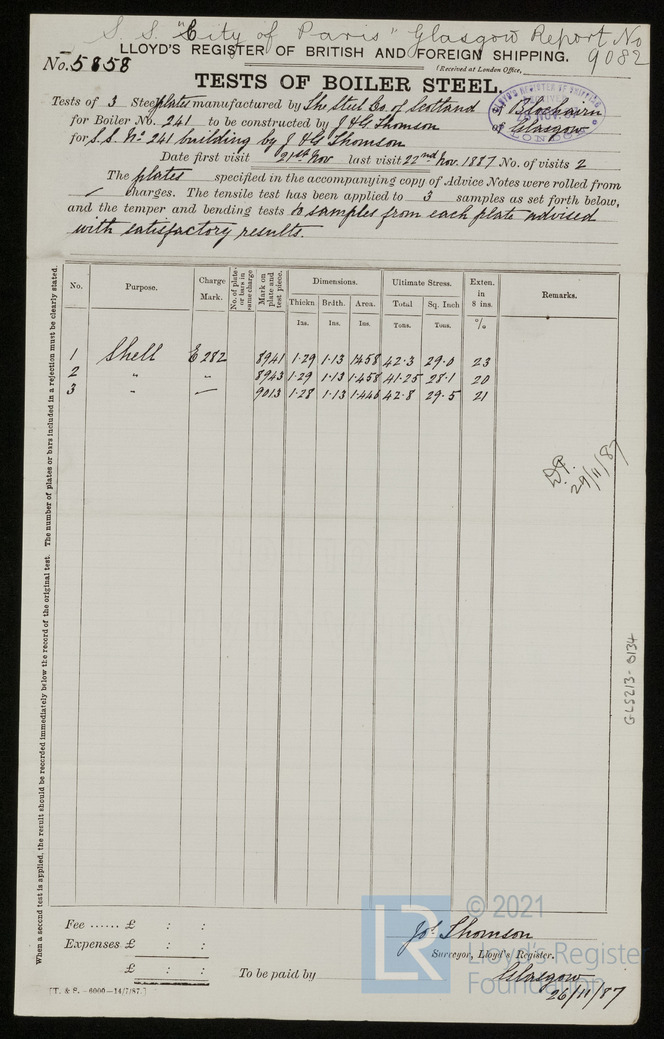 S. S. "City of Paris" Glasgow Report No 9082
LLOYD'S REGISTER OF BRITISH AND FOREIGN SHIPPING.
No. 5858
(Received at London Office,
TESTS OF BOILER STEEL.
Tests of 3 Steel plates manufactured by The Steel Co. of Scotland at Blochairn
for Boiler No. 241 to be constructed by J & G Thomson of Glasgow
for S.S. No 241 building by J & G Thomson
Date first visit 21st Nov last visit 22nd Nov. 1887. No. of visits 2
The plates specified in the accompanying copy of Advice Notes were rolled from
/ charges. The tensile test has been applied to 3 samples as set forth below,
and the temper and bending tests to samples from each plate advised
with satisfactory results.
When a second test is applied, the result should be recorded immediately below the record of the original test. The number of plates or bars included in a rejection must be clearly stated.
No. Purpose. Charge Mark. No. of plates or bars in same charge Mark on plate and test piece. Dimensions. Ultimate Stress. Exten. in 8 ins. Remarks.
Thickn Brdth. Area. Total Sq. Inch
Ins. Ins. Ins. Tons. Tons. %
1 Shell E 282 8941 1·29 1·13 1·458 42·3 29·0 23
2 " " 8943 1·29 1·13 1·458 41·25 28·1 20
3 " — 9013 1·28 1·13 1·446 42·8 29·5 21
29/11/87
GLS213-0134
Fee ...... £ : :
Expenses £ : :
£ : :
To be paid by
Jos. Thomson
Surveyor, Lloyd's Register.
Glasgow
26/11/87
[T. & S. - 6000 - 14/7/87.]
LR
© 2021
Lloyd's Register
Foundation